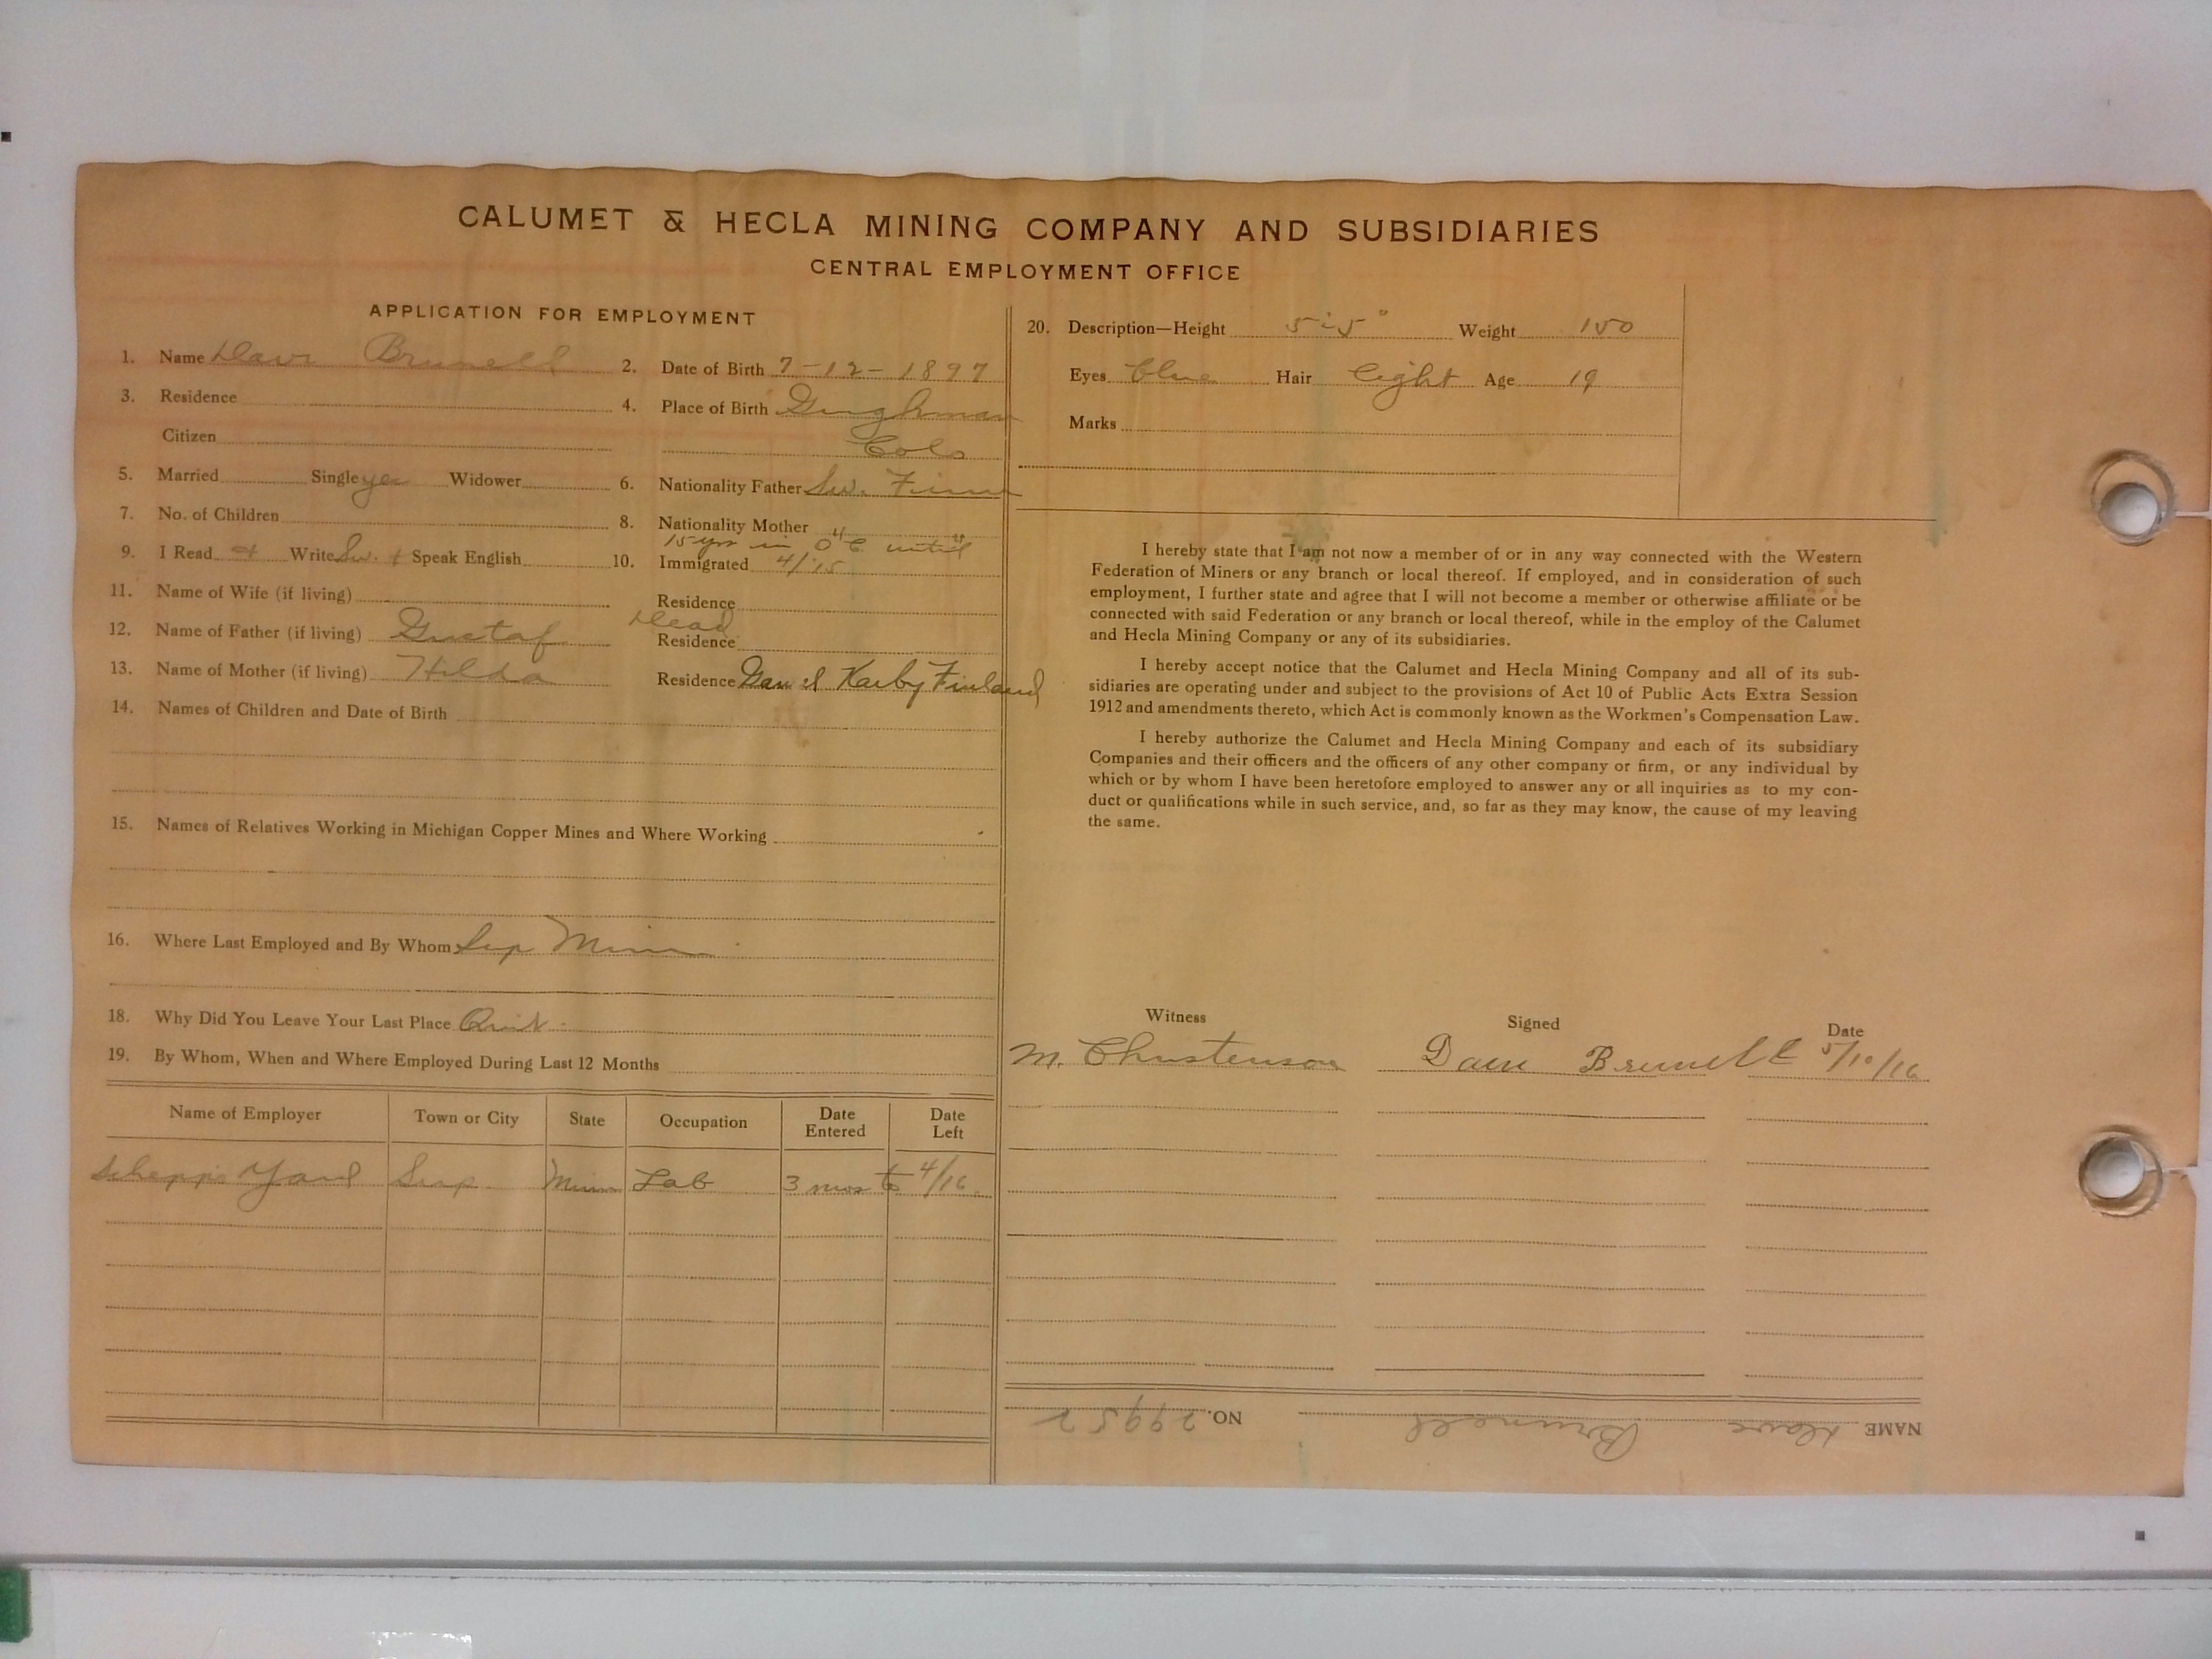 CALUMET & HECLA MINING COMPANY AND SUBSIDIARIES
CENTRAL EMPLOYMENT OFFICE
APPLICATION FOR EMPLOYMENT
1. Name Dave Brunell 2. Date of Birth 7-12-1897
3. Residence 4. Place of Birth
Citizen Colo
5. Married Single yes Widower 6. Nationality Father Sw. Finn
7. No. of Children 8. Nationality Mother " "
15 yrs in O.C. until
9. I Read + Write Sw. + Speak English 10. Immigrated 4/15
11. Name of Wife (if living) Residence
12. Name of Father (if living) Gustaf Dead Residence
13. Name of Mother (if living) Hilda Residence Karby Finland
14. Names of Children and Date of Birth
15. Names of Relatives Working in Michigan Copper Mines and Where Working
16. Where Last Employed and By Whom Sup Minn
18. Why Did You Leave Your Last Place Quit
19. By Whom, When and Where Employed During Last 12 Months
Name of Employer Town or City State Occupation Date Entered Date Left
Yard Sup. Minn Lab 3 mos to 4/16
20. Description—Height 5'5" Weight 150
Eyes blue Hair light Age 19
Marks
I hereby state that I am not now a member of or in any way connected with the Western
Federation of Miners or any branch or local thereof. If employed, and in consideration of such
employment, I further state and agree that I will not become a member or otherwise affiliate or be
connected with said Federation or any branch or local thereof, while in the employ of the Calumet
and Hecla Mining Company or any of its subsidiaries.
I hereby accept notice that the Calumet and Hecla Mining Company and all of its sub-
sidiaries are operating under and subject to the provisions of Act 10 of Public Acts Extra Session
1912 and amendments thereto, which Act is commonly known as the Workmen's Compensation Law.
I hereby authorize the Calumet and Hecla Mining Company and each of its subsidiary
Companies and their officers and the officers of any other company or firm, or any individual by
which or by whom I have been heretofore employed to answer any or all inquiries as to my con-
duct or qualifications while in such service, and, so far as they may know, the cause of my leaving
the same.
Witness Signed Date
M. Christenson Dave Brunell 5/10/16
NAME Dave Brunell NO. 29952